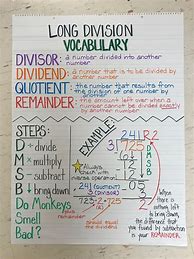 LONG DIVISION
VOCABULARY
DIVISOR: a number divided into another
number
DIVIDEND: a number that is to be divided by
another number
QUOTIENT: the number that results
from division of one
number by another
REMAINDER: the amount left over when a
number cannot be divided
exactly by another
STEPS:
D = divide
M = multiply
S = subtract
B = bring down
Do Monkeys
Smell
Bad?
EXAMPLE:
241 R2
3 725
D
M
S
B
Always
check with
241 (quotient)
x 3 (divisor)
723
+ 2
725
should equal
the dividend
When
there is
nothing
to bring down,
the difference
found by subtraction
is your REMAINDER